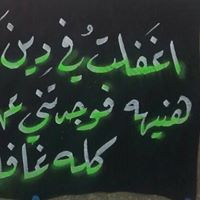 اغفلتُ في دين
هنيهه فوجدتني
كله